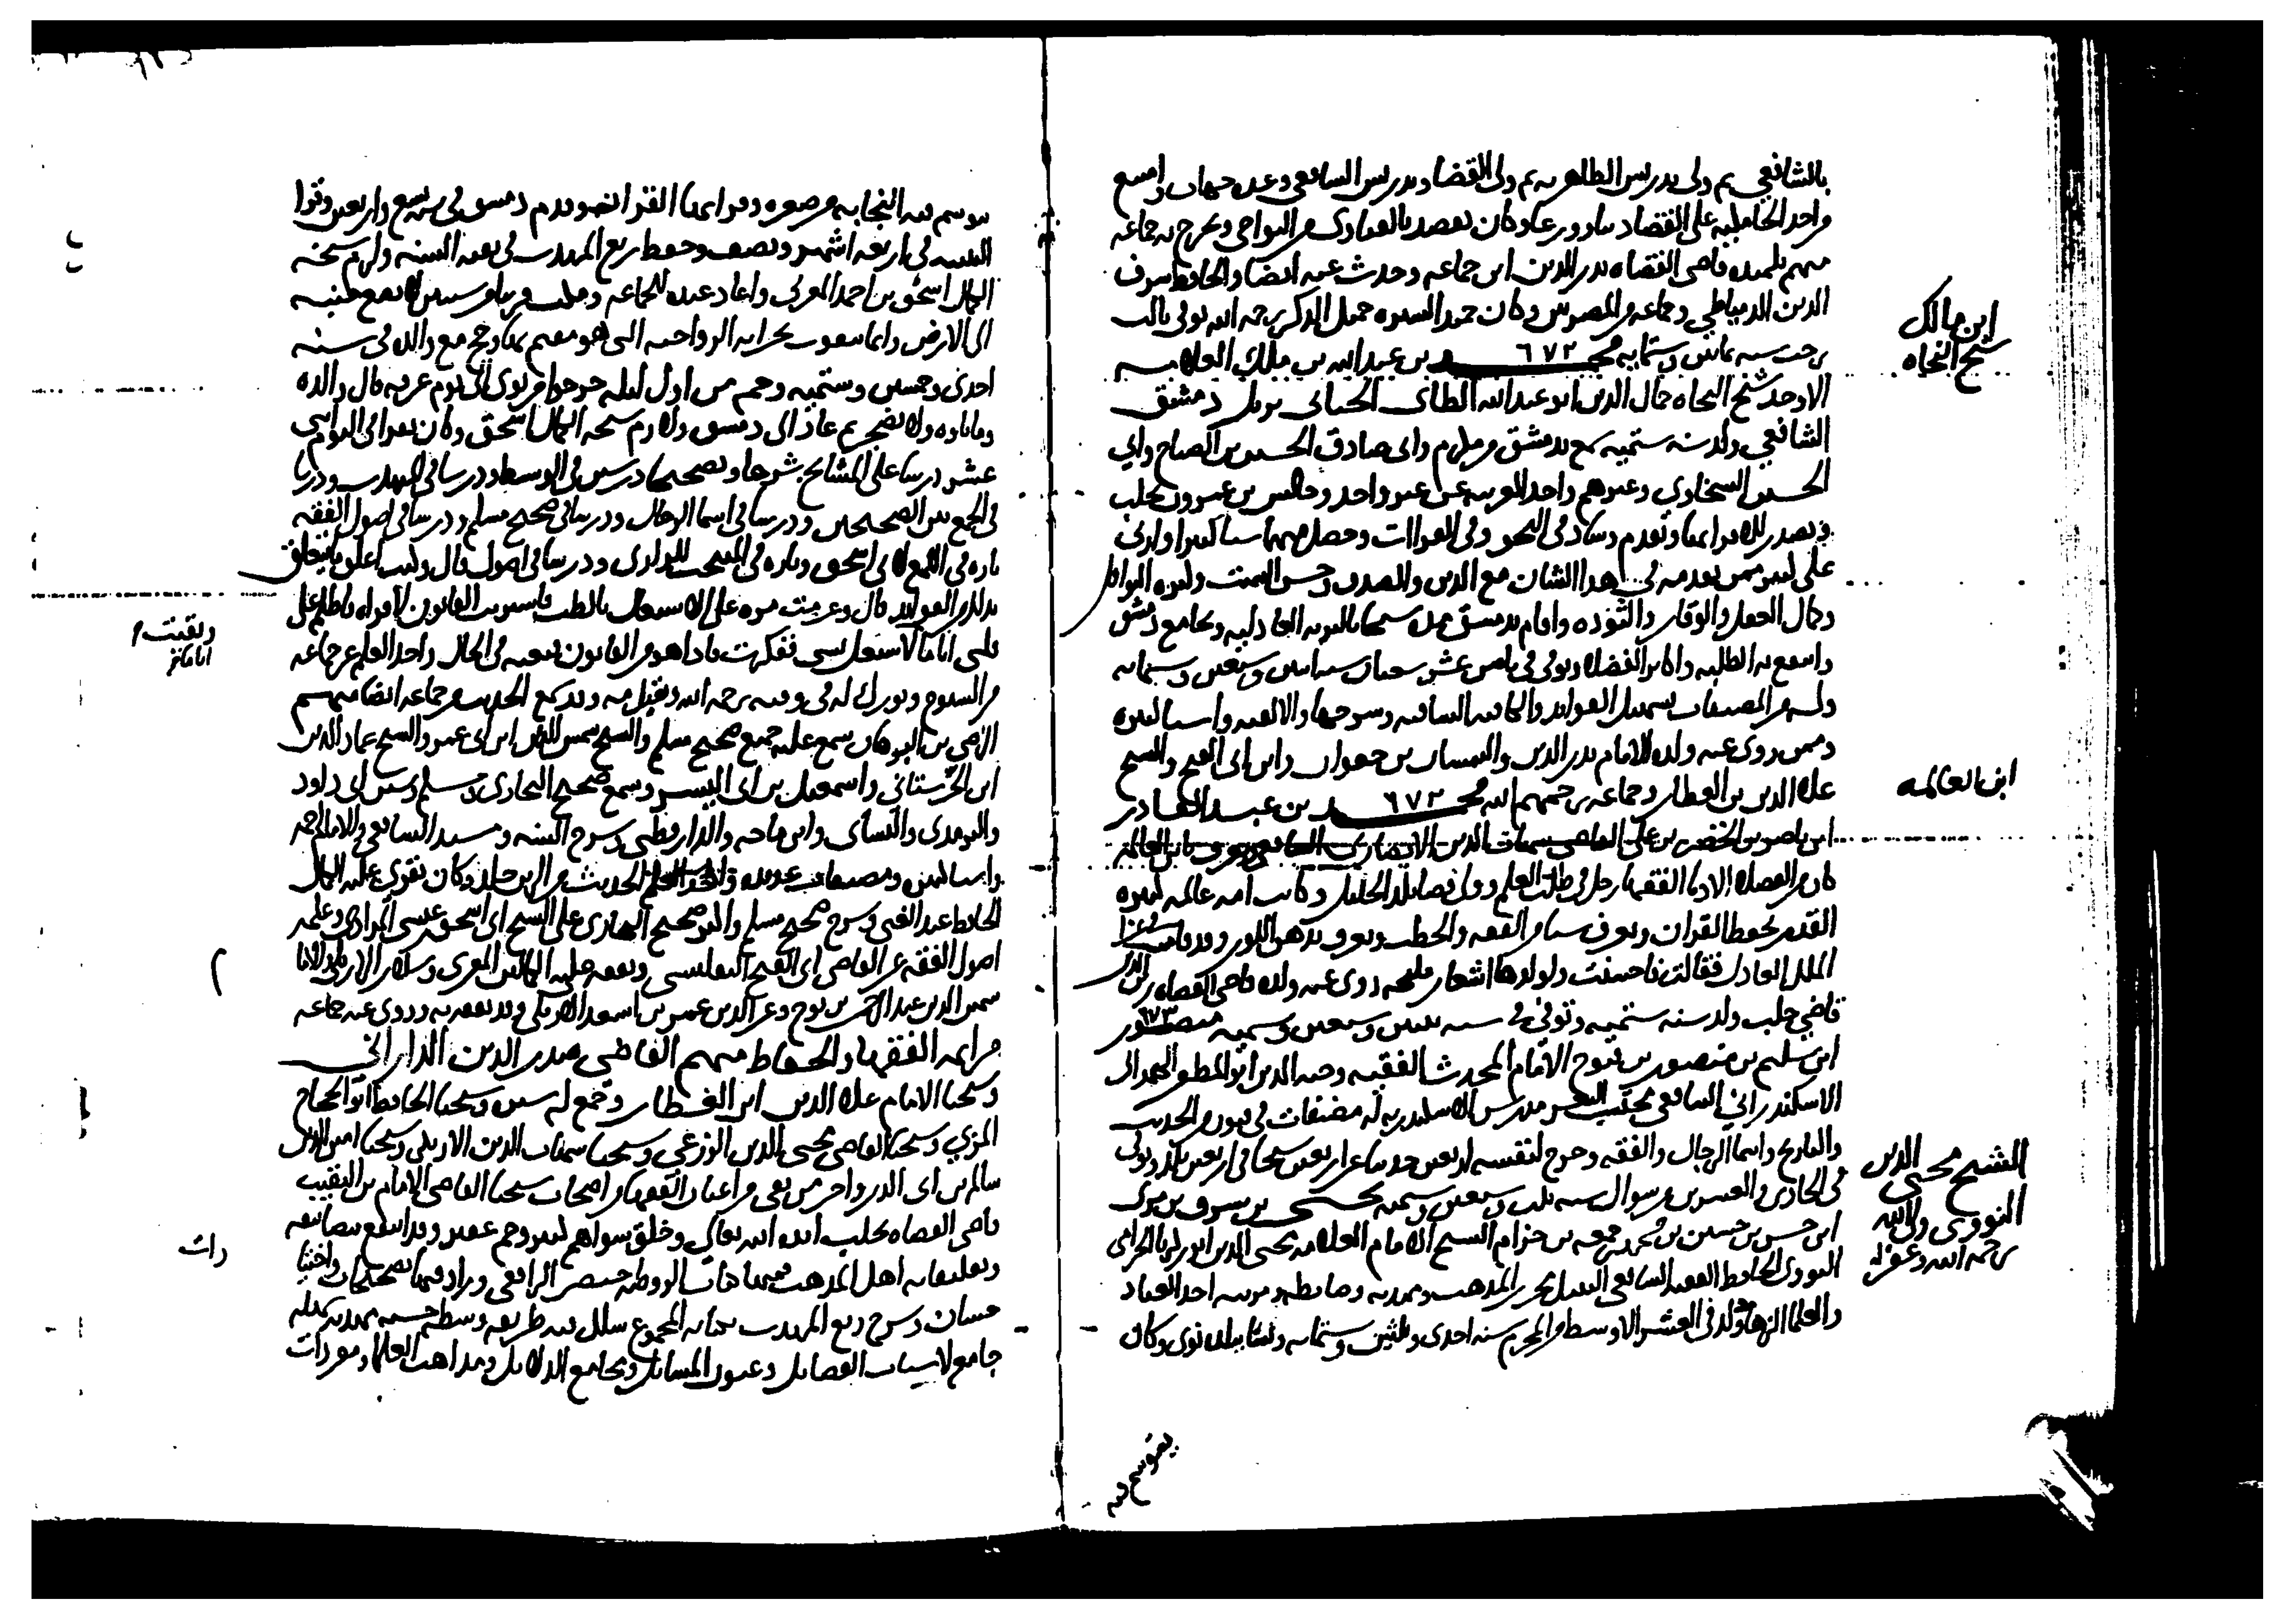 بالشافعي ثم ولي تدريس الظاهرية ثم ولي القضا وتدريس الشافعي وعده جهات وامتنع
من اخذ الجامكية على القضا دينا وورعا وكان يقصد بالفتاوى من النواحي وتخرج به جماعة
منهم تلميذه قاضي القضاه بدر الدين ابن جماعه وحدث عنه ايضا والحافظ شرف
الدين الدمياطي وجماعه من المصريين وكان حميد السيره جميل الذكر رحمه الله توفي ثالث
رجب سنه ثمانين وستمايه محمد ٦٧٢ بن عبد الله بن ملك العلامه
الاوحد شيخ النحاه جمال الدين ابو عبد الله الطائي الجياني نزيل دمشق
الشافعي ولد سنه ستميه سمع بدمشق من مكرم وابي صادق الحسن بن الصباح وابي
الحسن السخاوي وغيرهم واخذ العربيه عن غير واحد وجالس بن عمرون بحلب
وتصدر للاقرا بها وتقدم وساد في النحو وفي القراات وحصل منهما شيا كثيرا واربى
على كثير ممن تقدمه في هذا الشان مع الدين والصدق وحسن السمت وكثره النوافل
وكمال العقل والوقار والتؤده واقام بدمشق مده سما بالتربه العادليه وبجامع دمشق
واسمع به الطلبه واكابر الفضلا وتوفي في ثامن عشر شعبان سنه اثنين وسبعين وستمايه
وله من المصنفات تسهيل الفوايد والكافيه الشافيه وشرحها والالفيه واشيا كثيره
وممن روى عنه ولده الامام بدر الدين والشمسان بن جعوان وابن ابي الفتح والشيخ
علا الدين بن العطار وجماعه رحمهم الله محمد ٦٧٢ بن عبد القادر
ابن ناصر بن الخضر بن علي القاضي شهاب الدين الانصاري الشافعي يعرف بابن العالمة
كان من الفضلا الادبا الفقها رحل في طلب العلم وولي قضا بلد الخليل وكانت امه عالمه كبيره
القدر تحفظ القران وتعرف شيا من الفقه والخطب وتعرف بدهن اللوز وقد قامت في عزا
الملك العادل فقالت فاحسنت ولولدها اشعار مليحه روى عنه ولده قاضي القضاه زين الدين
قاضي حلب ولد سنه ستميه وتوفي في سنه ثنتين وسبعين وستميه منصور ٦٧٣
ابن سليم بن منصور بن فتوح الامام المحدث الفقيه وجيه الدين ابو المظفر الهمداني
الاسكندراني الشافعي محتسب الثغر مدرس الاسكندريه له مصنفات في فنون الحديث
والتاريخ واسما الرجال والفقه وخرج لنفسه اربعين حديثا عن اربعين شيخا في اربعين بلد وتوفي
في الحادي والعشرين من شوال سنه ثلث وسبعين وستميه يحيى بن شرف بن مري
ابن حسن بن حسين بن محمد بن جمعه بن حزام الشيخ الامام العلامه محيي الدين ابو زكريا الحزامي
النووي الحافظ الفقيه الشافعي النبيل محرر المذهب ومهذبه وضابطه ومرتبه احد العباد
والعلما الزهاد ولد في العشر الاوسط من المحرم سنه احدى وثلثين وستمايه ونشا ببلده نوى وكان
ابن مالك
شيخ النحاه
ابن العالمه
الشيخ محيي الدين
النووي ولي الله
رحمه الله وغفر له
يتوسم فيه النجابه من صغره وقرا بها القران ثم قدم دمشق في سنه تسع واربعين وقرا
التنبيه في اربعه اشهر ونصف وحفظ ربع المهذب في بقيه السنه ولزم شيخه
الكمال اسحق بن احمد المغربي واعاد عنده للجماعه ومكث قريبا من سنتين لا يضع جنبه
الى الارض وانما يتقوت بجرايه الرواحيه التي هو مقيم بها وحج مع والده في سنه
احدى وخمسين وستميه وحم من اول ليله خرجوا من نوى الى يوم عرفه قال والده
وما تاوه ولا تضجر ثم عاد الى دمشق ولازم شيخه الكمال اسحق وكان يقرا في اليوم اثني
عشر درسا على المشايخ شرحا وتصحيحا درسين في الوسيط ودرسا في المهذب ودرسا
في الجمع بين الصحيحين ودرسا في اسما الرجال ودرسا في صحيح مسلم ودرسا في اصول الفقه
تاره في اللمع لابي اسحق وتاره في المنتخب للرازي ودرسا في اصول قال وكنت اعلق ما يتعلق
بذلك من الفوايد قال وعزمت مره على الاشتغال بالطب فاشتريت القانون لاقراه فاظلم على
قلبي اياما لا اشتغل بشي ففكرت فاذا هو من القانون فبعته في الحال واخذ العلم عن جماعه
من الشيوخ وبورك له في وقته رحمه الله وتقبل منه وقد سمع الحديث من جماعه ايضا منهم
الرضي بن البرهان سمع عليه جميع صحيح مسلم والشيخ شمس الدين ابن ابي عمر والشيخ عماد الدين
ابن الحرستاني واسمعيل بن ابي اليسر وسمع صحيح البخاري ومسلم وسنن ابي داود
والترمذي والنسائي وابن ماجه والدارقطني وشرح السنه ومسند الشافعي والامام احمد
واشيا كثيره ومصنفات عديده واخذ علم الحديث من الزين خالد وكان يقرى عليه الكمال
للحافظ عبد الغني وشرح صحيح مسلم واكثر صحيح البخاري على الشيخ ابي اسحق عيسى المرادي وعلمه
اصول الفقه عن القاضي ابي الفتح التفليسي وتفقه على الكمالين المغربي وسلار الاربلي والامام
شمس الدين عبد الرحمن بن نوح وعز الدين عمر بن اسعد الاربلي وقد تفقه به وروى عنه جماعه
من ايمه الفقها والحفاظ منهم القاضي صدر الدين الداراني
وشيخنا الامام علا الدين ابن العطار وجمع له سيره وشيخنا الحافظ ابو الحجاج
المزي وشيخنا القاضي محيي الدين الزرعي وشيخنا شهاب الدين الاربلي وشيخنا امين الدين
سالم بن ابي الدر واخر من بقي من اعيان الفقها واصحابه شيخنا القاضي الامام بن النقيب
قاضي القضاه بحلب ايده الله تعالى وخلق سواهم كثير وجم غفير وقد انتفع بتصانيفه
وتعليقاته اهل المذهب فمنها كتاب الروضه مختصر الرافعي وزاد فيها تصحيحات واختيا
حسان وشرح ربع المهذب سماه المجموع سلك فيه طريقه وسطه حسنه مهذبه كامله
جامع لاشتات الفضايل وعيون المسايل ومجامع الدلايل ومذاهب العلما ومفردات
وبقيت
اياما
رات